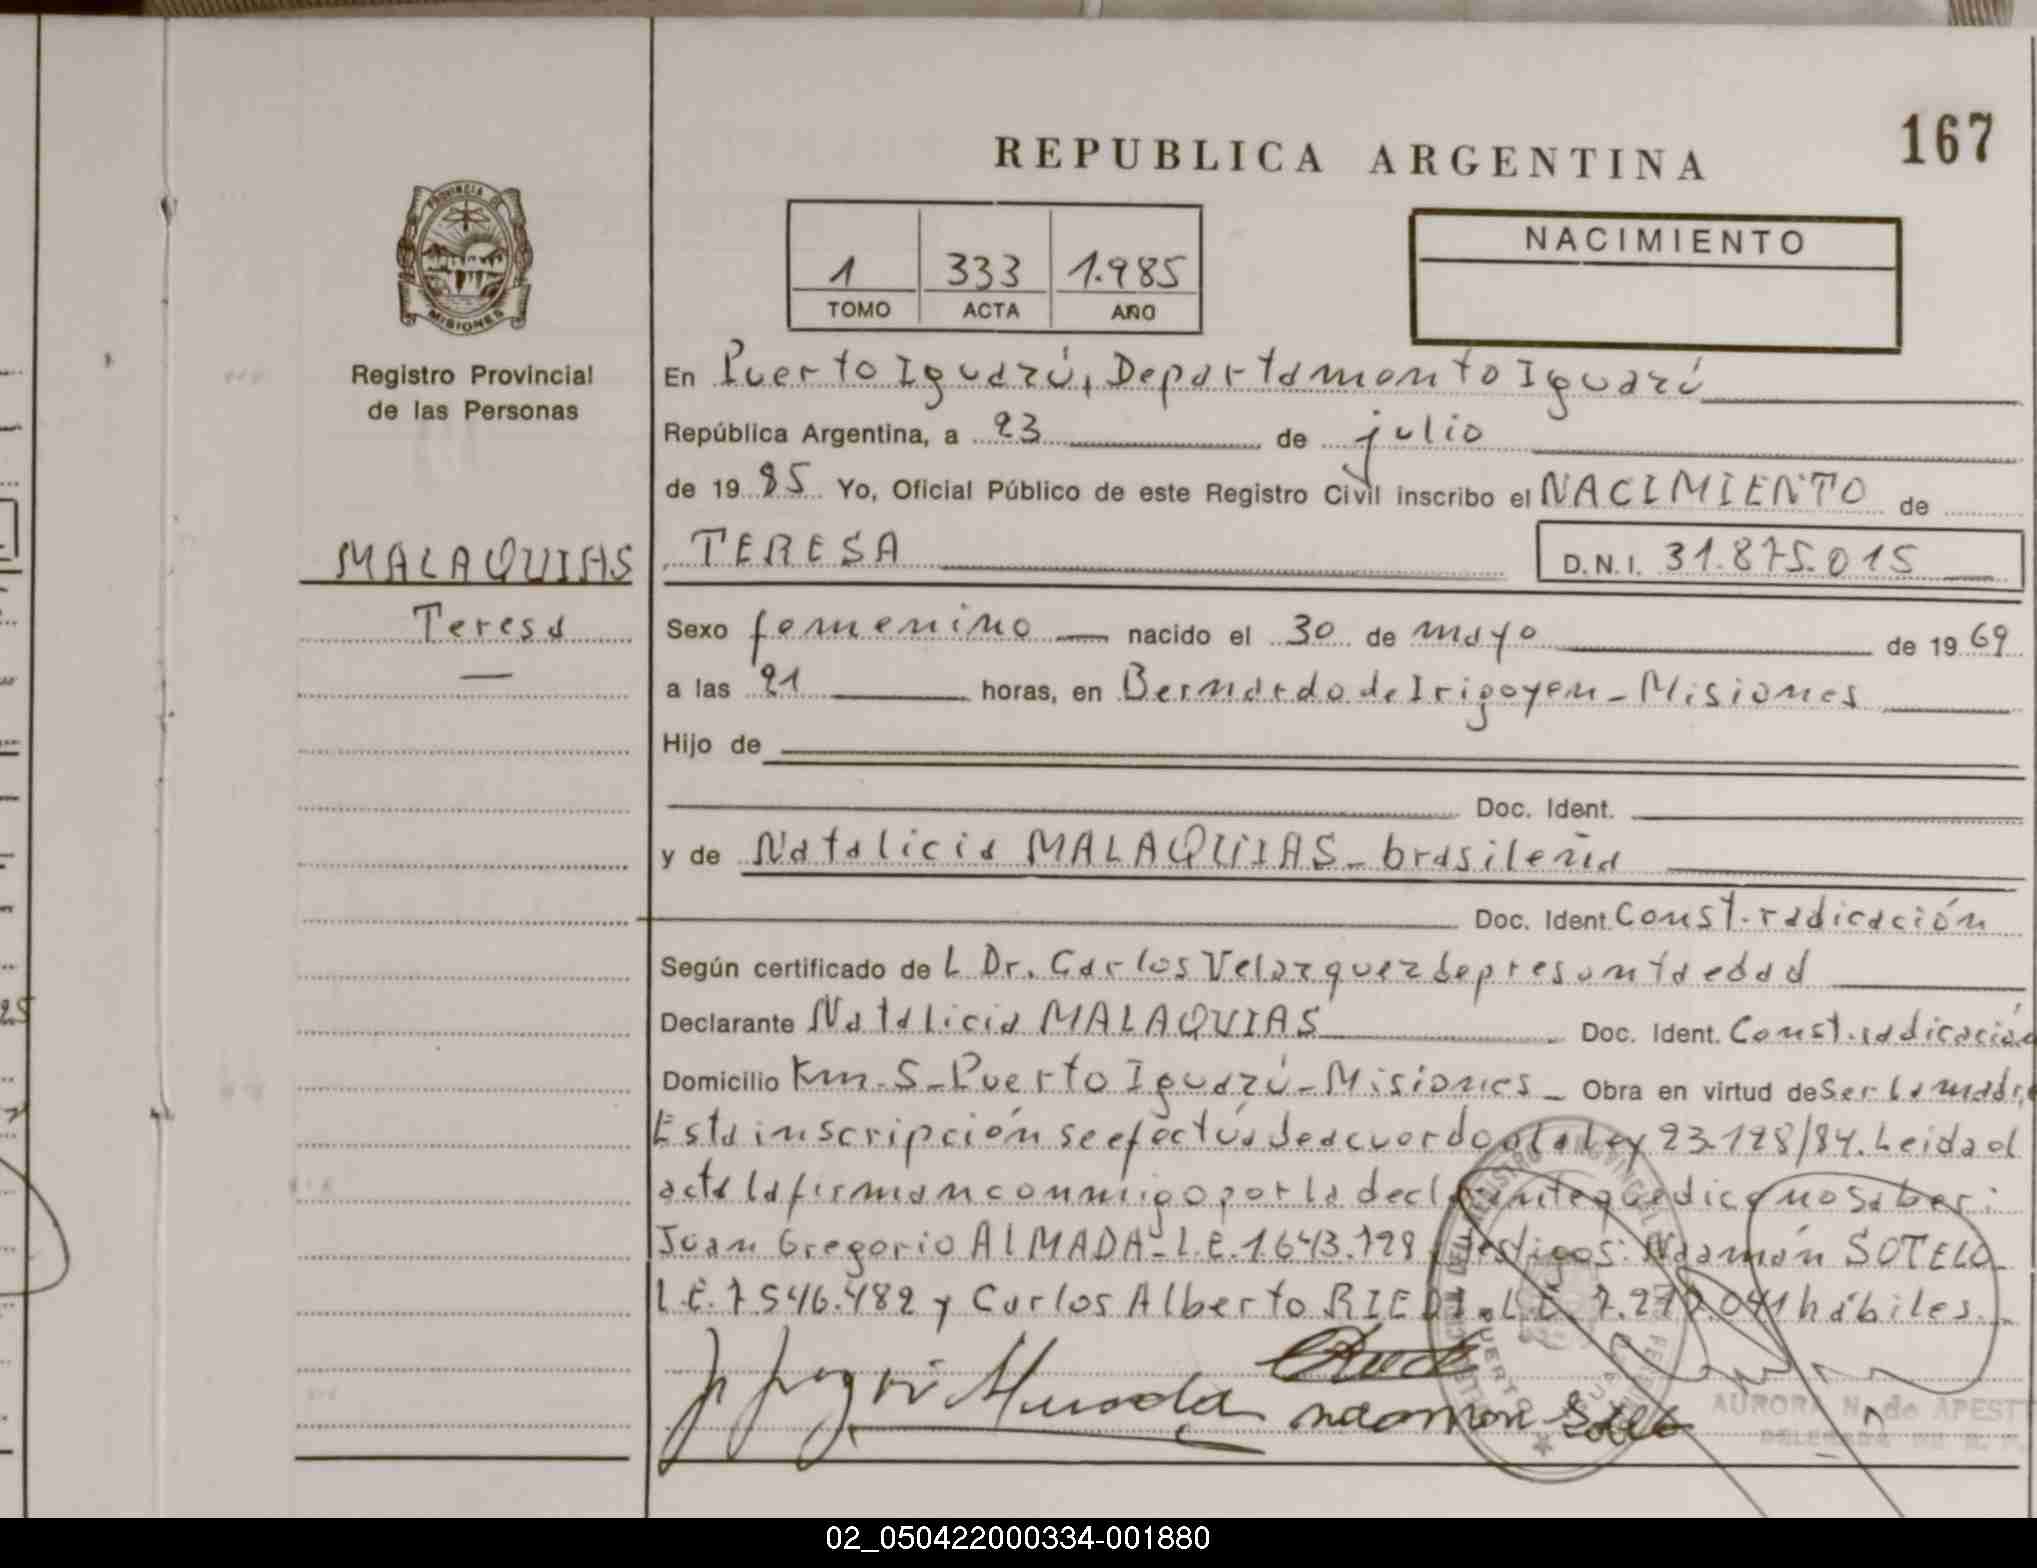 167
REPUBLICA ARGENTINA
PROVINCIA DE
MISIONES
Registro Provincial
de las Personas
1 333 1.985
TOMO ACTA AÑO
NACIMIENTO
En Puerto Iguazú, Departamento Iguazú
República Argentina, a 23 de julio
de 19 85 Yo, Oficial Público de este Registro Civil inscribo el NACIMIENTO de
MALAQUIAS, TERESA D.N.I. 31.875.015
Teresa
Sexo femenino nacido el 30 de mayo de 19 69
a las 21 horas, en Bernardo de Irigoyen - Misiones
Hijo de
Doc. Ident.
y de Natalicia MALAQUIAS - brasileña
Doc. Ident. Const. radicación
Según certificado de L Dr. Carlos Velazquez de presunta edad
Declarante Natalicia MALAQUIAS Doc. Ident. Const. radicación
Domicilio Km. 5 - Puerto Iguazú - Misiones - Obra en virtud de Ser la madre
Esta inscripción se efectúa de acuerdo a la Ley 23.128/84. Leida el
acta la firman conmigo por la declarante que dice no saber:
Juan Gregorio ALMADA - L.E. 1.643.128, testigos: Naamán SOTELO -
L.E. 7.546.482 y Carlos Alberto RIEDI - L.E. 7.217.041 hábiles.
naaman Sotelo
AURORA N. de APEST
DELEGADA
02_050422000334-001880